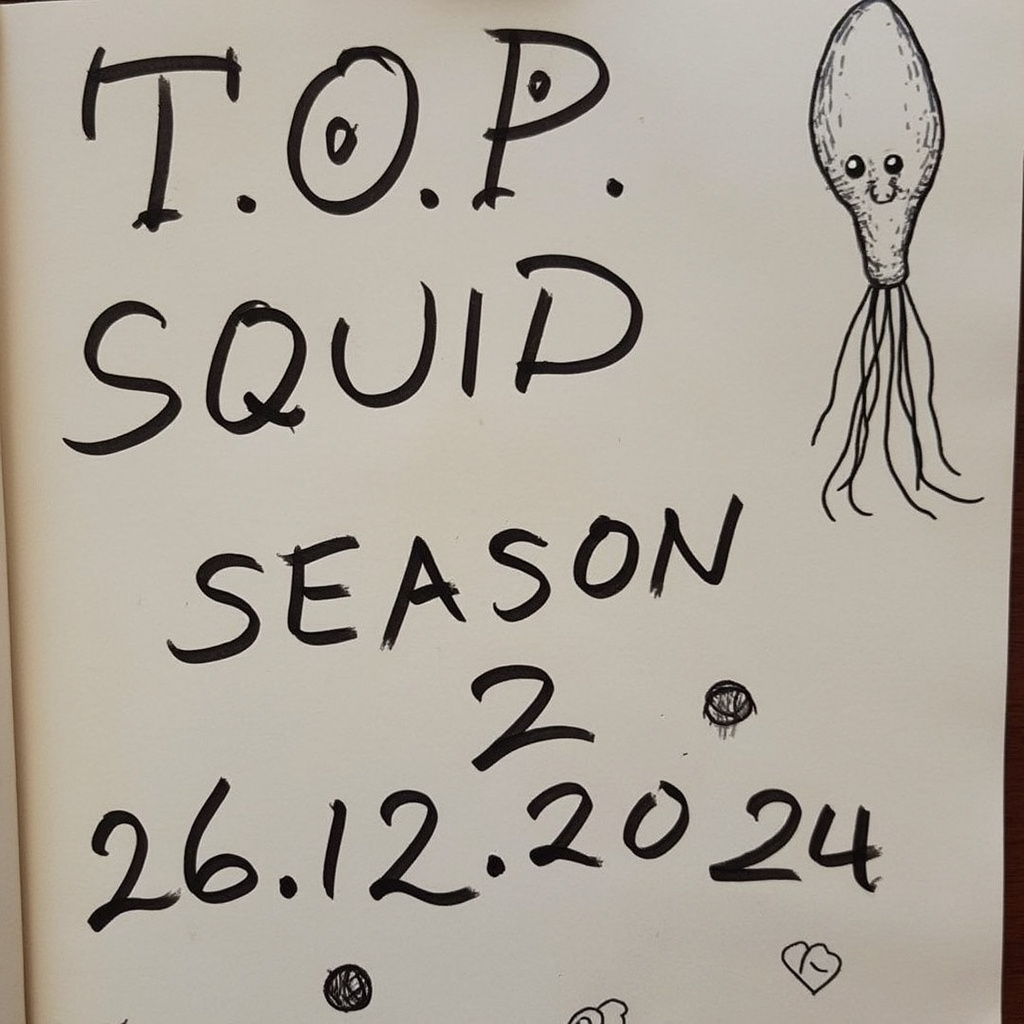 T.O.P.
SQUID
SEASON
2
26.12.2024